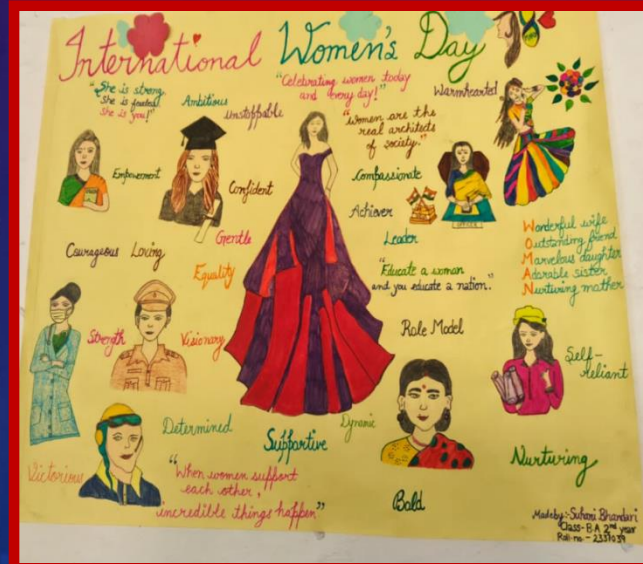 International Women's Day
"She is strong
She is fearless
She is you!"
Ambitious
Unstoppable
"Celebrating women today
and every day!"
Warmhearted
"Women are the
real architects
of society."
Empowerment
Confident
Compassionate
Achiever
Gentle
Leader
OFFICER
Courageous
Loving
Equality
"Educate a woman
and you educate a nation."
Wonderful wife
Outstanding friend
Marvelous daughter
Adorable sister
Nurturing mother
Strength
Visionary
Role Model
Self-
reliant
Determined
Supportive
Dynamic
Nurturing
Victorious
"When women support
each other,
incredible things happen"
Bold
Made by:- Suhani Bhandari
Class- B.A 2nd year
Roll no. - 2331039